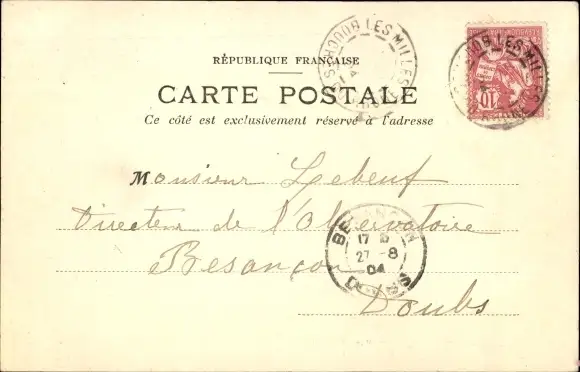 RÉPUBLIQUE FRANÇAISE
CARTE POSTALE
Ce côté est exclusivement réservé à l'adresse
LES MILLES
BOUCHES
LES MILLES
10
Monsieur Lebeuf
Directeur de l'Observatoire
Besançon
Doubs
BESANÇON
17
27 - 8
04
DOUBS